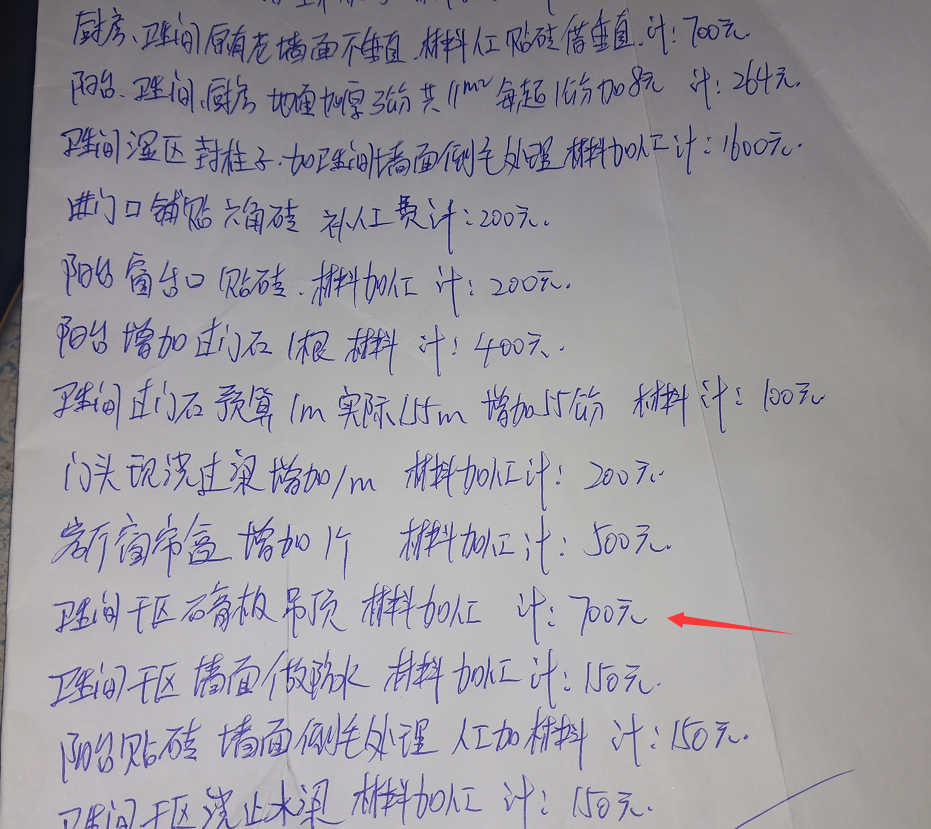 厨房、卫生间原有老墙面不垂直.材料人工贴砖借垂直.计:700元.
阳台、卫生间、厨房 地面加厚3公分共11m² 每超1公分加8元 计:264元.
卫生间湿区封柱子.加卫生间墙面倒毛处理材料加人工计:1600元.
进门口铺贴六角砖 补人工费计:200元.
阳台窗台口贴砖.材料加人工 计:200元.
阳台增加过门石1根 材料 计:400元.
卫生间过门石预算1m实际1.55m 增加55公分 材料计:100元
门头现浇过梁增加1m 材料加人工计:200元.
客厅窗帘盒 增加1个 材料加人工计:500元.
卫生间干区石膏板吊顶 材料加人工 计:700元
卫生间干区墙面做防水 材料加人工计:150元.
阳台贴砖 墙面倒毛处理 人工加材料 计:150元.
卫生间干区浇止水梁 材料加人工 计:150元.